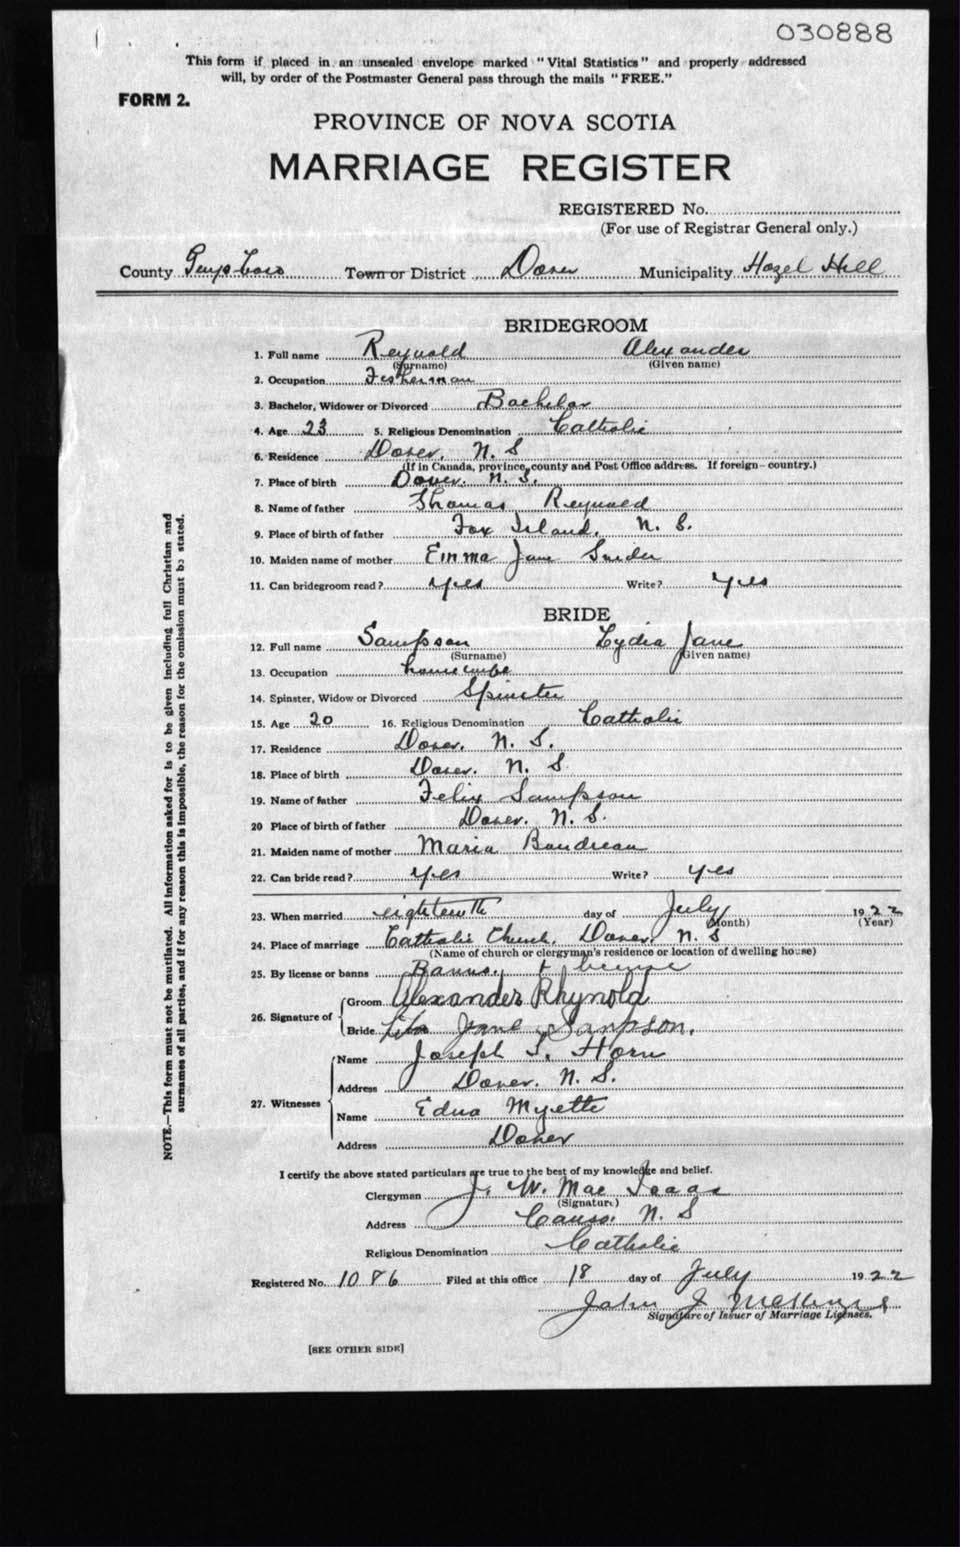 030888
This form if placed in an unsealed envelope marked "Vital Statistics" and properly addressed
will, by order of the Postmaster General pass through the mails "FREE."
FORM 2.
PROVINCE OF NOVA SCOTIA
MARRIAGE REGISTER
REGISTERED No.
(For use of Registrar General only.)
County Guysboro Town or District Dover Municipality Hazel Hill
BRIDEGROOM
1. Full name Reynold Alexander
(Surname) (Given name)
2. Occupation Fisherman
3. Bachelor, Widower or Divorced Bachelor
4. Age 23 5. Religious Denomination Catholic
6. Residence Dover. N. S
(If in Canada, province, county and Post Office address. If foreign—country.)
7. Place of birth Dover. N. S.
8. Name of father Thomas Reynold
9. Place of birth of father Fox Island. N. S.
10. Maiden name of mother Emma Jane Snider
11. Can bridegroom read? yes Write? yes
BRIDE
12. Full name Sampson Lydia Jane
(Surname) (Given name)
13. Occupation
14. Spinster, Widow or Divorced Spinster
15. Age 20 16. Religious Denomination Catholic
17. Residence Dover. N. S.
18. Place of birth Dover. N. S
19. Name of father Felix Sampson
20 Place of birth of father Dover. N. S.
21. Maiden name of mother Maria Boudreau
22. Can bride read? yes Write? yes
23. When married eighteenth day of July 1922
(Month) (Year)
24. Place of marriage Catholic Church, Dover, N. S
(Name of church or clergyman's residence or location of dwelling house)
25. By license or banns Banns, & license
26. Signature of
Groom Alexander Rhynold
Bride Jane Sanpson.
27. Witnesses
Name Joseph S. Horn
Address Dover. N. S.
Name Edna Myette
Address Dover
I certify the above stated particulars are true to the best of my knowledge and belief.
Clergyman J. W. Mac Isaac
(Signature)
Address Canso. N. S
Religious Denomination Catholic
Registered No. 1086 Filed at this office 18 day of July 1922
John J
Signature of Issuer of Marriage Licenses.
[SEE OTHER SIDE]
NOTE.—This form must not be mutilated. All information asked for is to be given including full Christian and
surnames of all parties, and if for any reason this is impossible, the reason for the omission must be stated.